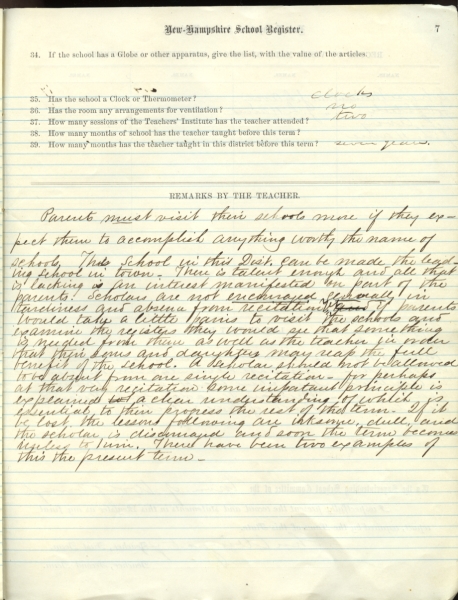 New-Hampshire School Register. 7
34. If the school has a Globe or other apparatus, give the list, with the value of the articles.
35. Has the school a Clock or Thermometer? Clock
36. Has the room any arrangements for ventilation? no
37. How many sessions of the Teachers' Institute has the teacher attended? two
38. How many months of school has the teacher taught before this term?
39. How many months has the teacher taught in this district before this term? seven years.
REMARKS BY THE TEACHER.
Parents must visit their schools more if they ex-
pect them to accomplish anything worth the name of
schools. This School in this Dist. can be made the lead-
ing school in town. There is talent enough and all that
is lacking is an interest manifested on part of the
parents. Scholars are not encouraged in
tardiness and absence from recitation if parents
would take a little pains to visit the schools and
examine the registers they would see that something
is needed from them as well as the teacher in order
that their sons and daughters may reap the full
benefit of the school. A scholar should not be allowed
to be absent from one single recitation for perhaps
at that very recitation some important principle is
explained a clear understanding of which is
essential to their progress the rest of the term. If it
be lost the lessons following are irksome, dull, and
the scholar is discouraged and soon the term becomes
to him. There have been two examples of
this the present term.